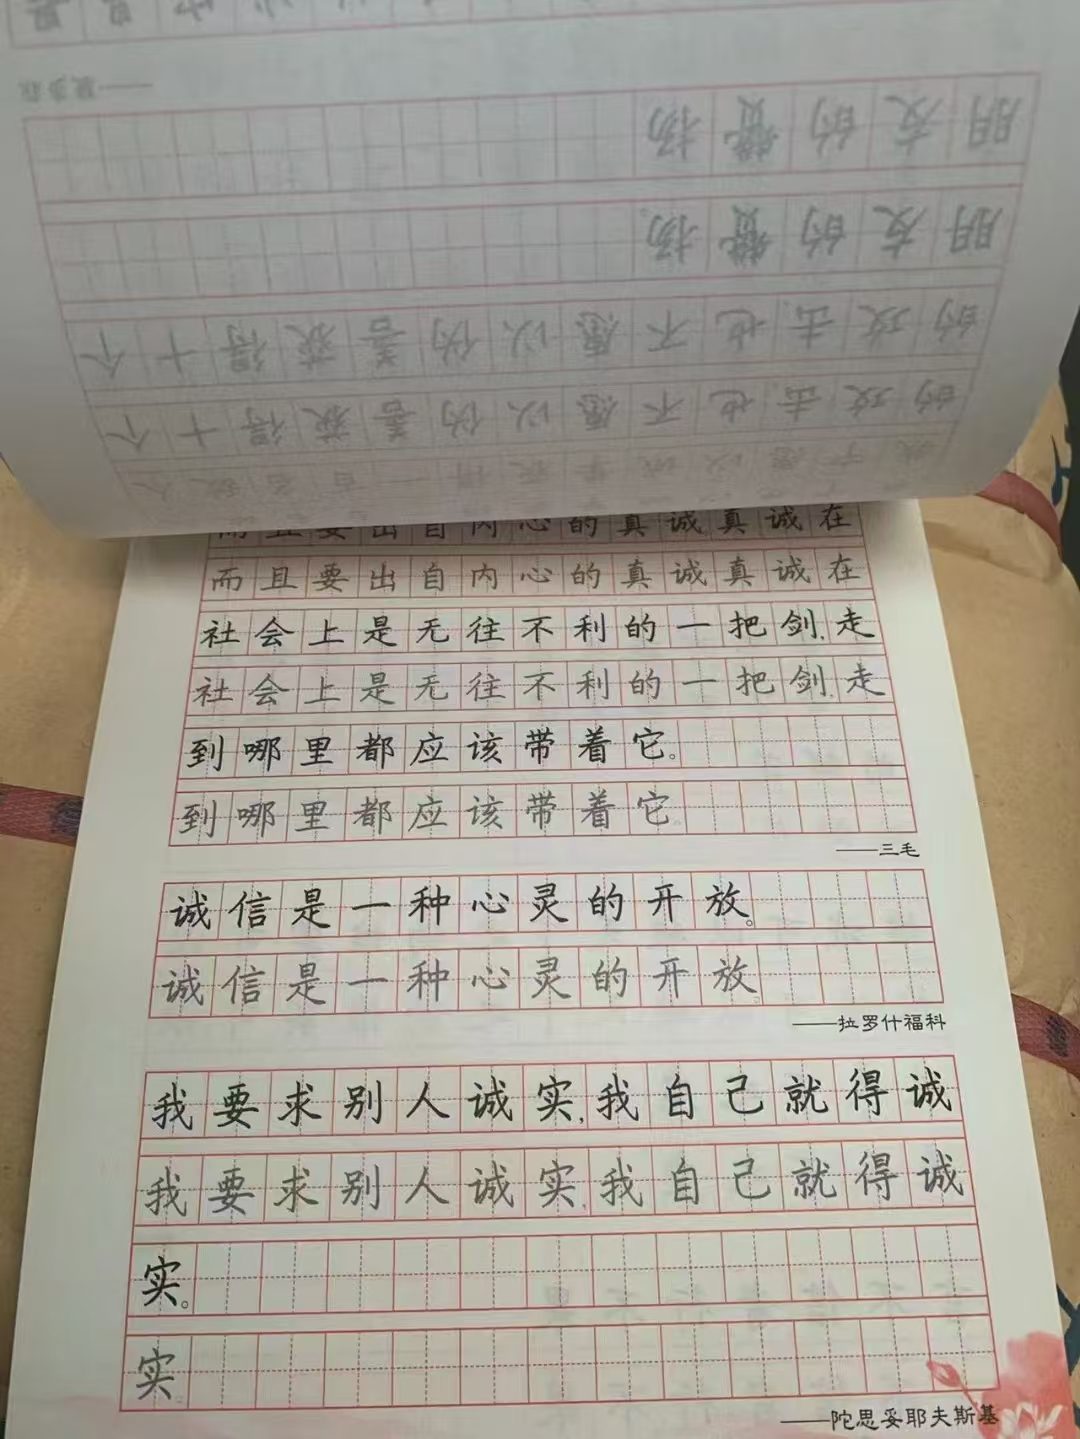 的攻击,也不愿以伪善获得十个
的攻击,也不愿以伪善获得十个
朋友的赞扬。
朋友的赞扬
——裴多菲
而且要出自内心的真诚真诚在
而且要出自内心的真诚真诚在
社会上是无往不利的一把剑,走
社会上是无往不利的一把剑,走
到哪里都应该带着它。
到哪里都应该带着它。
——三毛
诚信是一种心灵的开放。
诚信是一种心灵的开放。
——拉罗什福科
我要求别人诚实,我自己就得诚
我要求别人诚实,我自己就得诚
实。
实
——陀思妥耶夫斯基